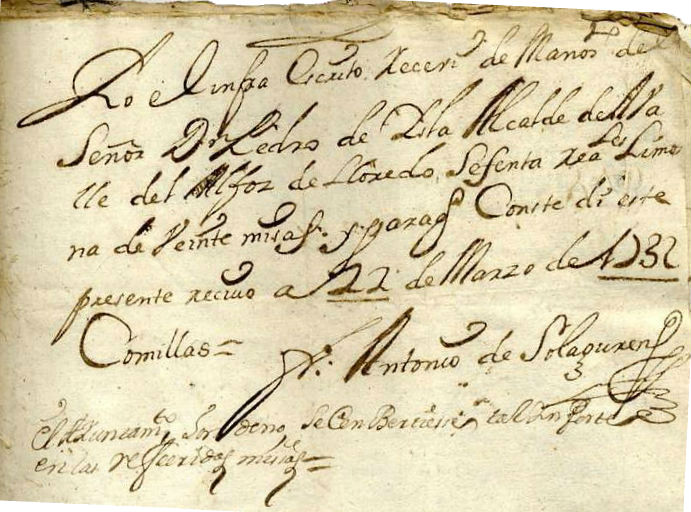 Yo el infra escrito receví de Manos del
Señor Dn Pedro de Isla Alcalde del Va
lle del Alfoz de Lloredo, Sesenta rea les Limo
na de Veinte misas. y paraq Conste di este
presente recivo a 22 de Marzo de 1732
Comillas =
Fr. Antonio de
El Ayuntamto Ordeno se Combertiese tal Inporte
en las referidas misas =